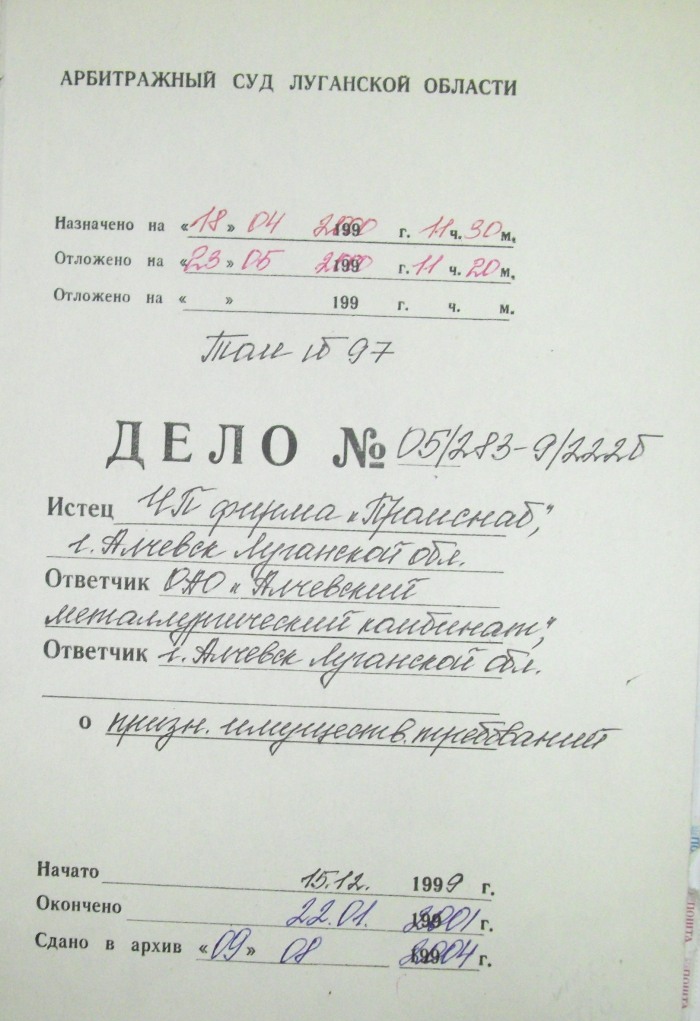 АРБИТРАЖНЫЙ СУД ЛУГАНСКОЙ ОБЛАСТИ
Назначено на «18» 04 2000 г. 11 ч. 30 м.
Отложено на «23» 05 2000 г. 11 ч. 20 м.
Отложено на « » 199 г. ч. м.
Том № 97
ДЕЛО № 05/283-9/222б
Истец ЧП фирма «Промснаб",
г. Алчевск Луганской обл.
Ответчик ОАО «Алчевский
металлургический комбинат",
Ответчик г. Алчевск Луганской обл.
о призн. имуществ. требований
Начато 15.12. 1999 г.
Окончено 22.01. 2001 г.
Сдано в архив «09» 08 2004 г.
ПОШТА